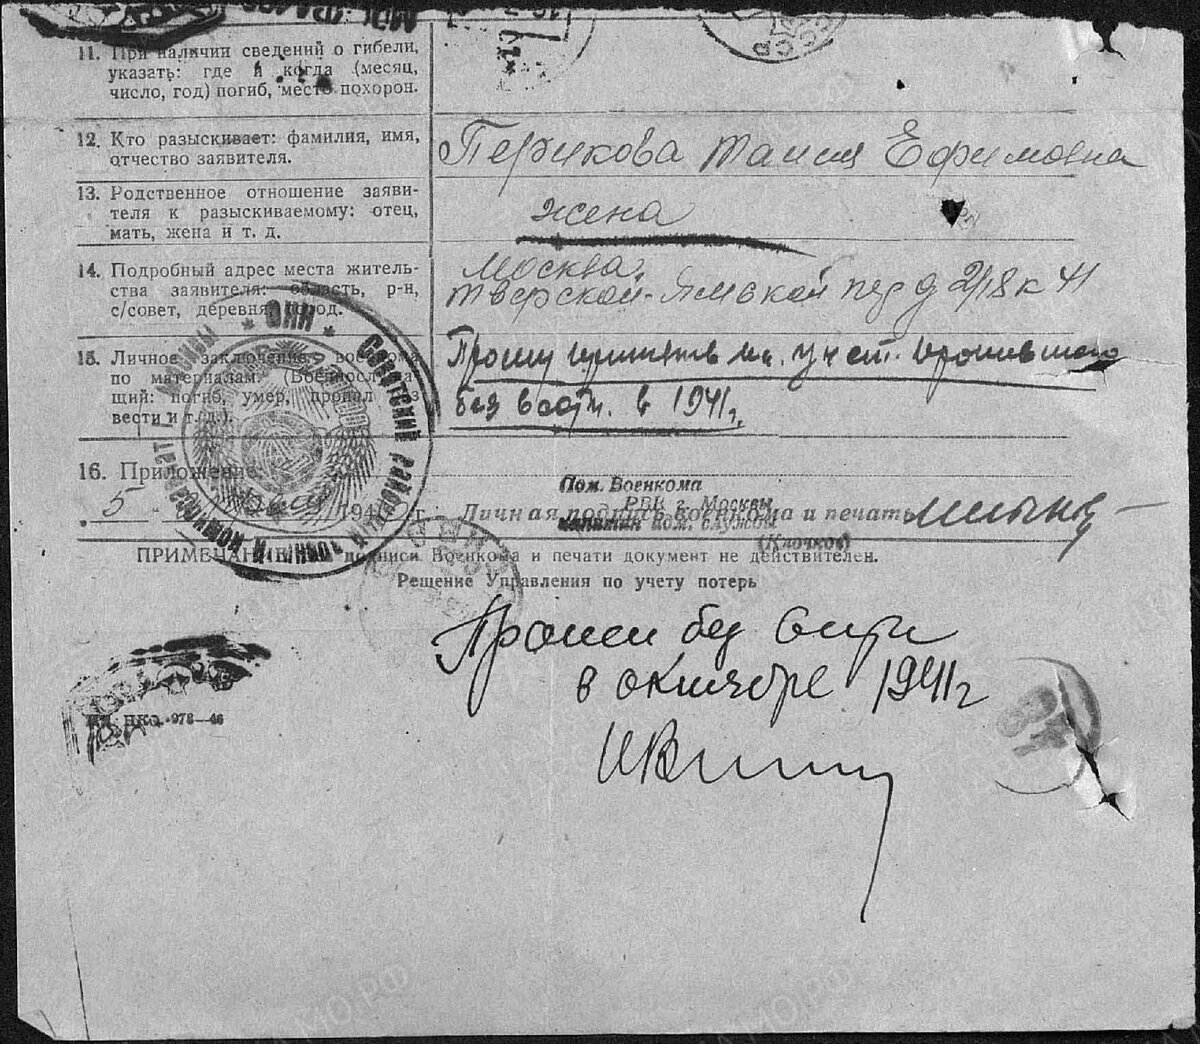 11. При наличии сведений о гибели,
указать: где и когда (месяц,
число, год) погиб, место похорон.
12. Кто разыскивает: фамилия, имя,
отчество заявителя.
Перикова Таисия Ефимовна
13. Родственное отношение заяви-
теля к разыскиваемому: отец,
мать, жена и т. д.
жена
14. Подробный адрес места житель-
ства заявителя: область, р-н,
с/совет, деревня, город.
Москва,
Тверской-Ямской пер д 2/18 к 41
15. Личное заключение военкома
по материалам. (Военнослужа-
щий: погиб, умер, пропал без
вести и т. д.).
Прошу принять на учет. пропавшего
без вести. в 1941 г.
16. Приложение:
5 194 г.
Личная подпись военкома и печать
Пом. Военкома
РВК г. Москвы
капитан юж. службы
(Клочков)
ПРИМЕЧАНИЕ: подписи Военкома и печати документ не действителен.
Решение Управления по учету потерь
Пропал без вести
в октябре 1941 г
ИП. НКО. 978—46
* НКО * Советский районный военный комиссариат Москвы
87